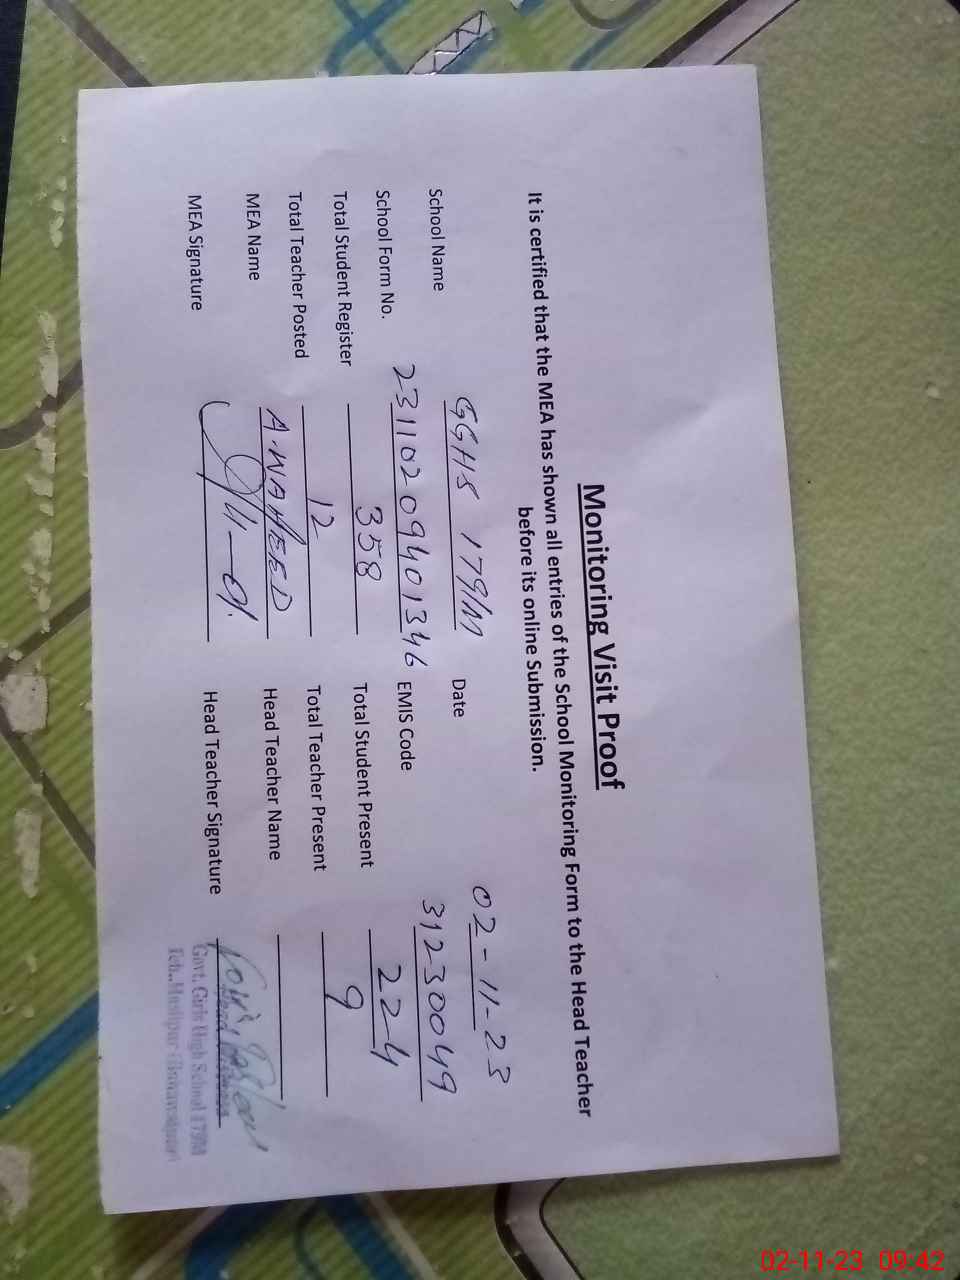 Monitoring Visit Proof
It is certified that the MEA has shown all entries of the School Monitoring Form to the Head Teacher
before its online Submission.
School Name GGHS 179/M Date 02-11-23
School Form No. 23110209401346 EMIS Code 31230049
Total Student Register 358 Total Student Present 224
Total Teacher Posted 12 Total Teacher Present 9
MEA Name A.WAHEED Head Teacher Name
MEA Signature Head Teacher Signature
Govt. Girls High School 179M
Teh., Hasilpur (Bahawalpur)
02-11-23 09:42